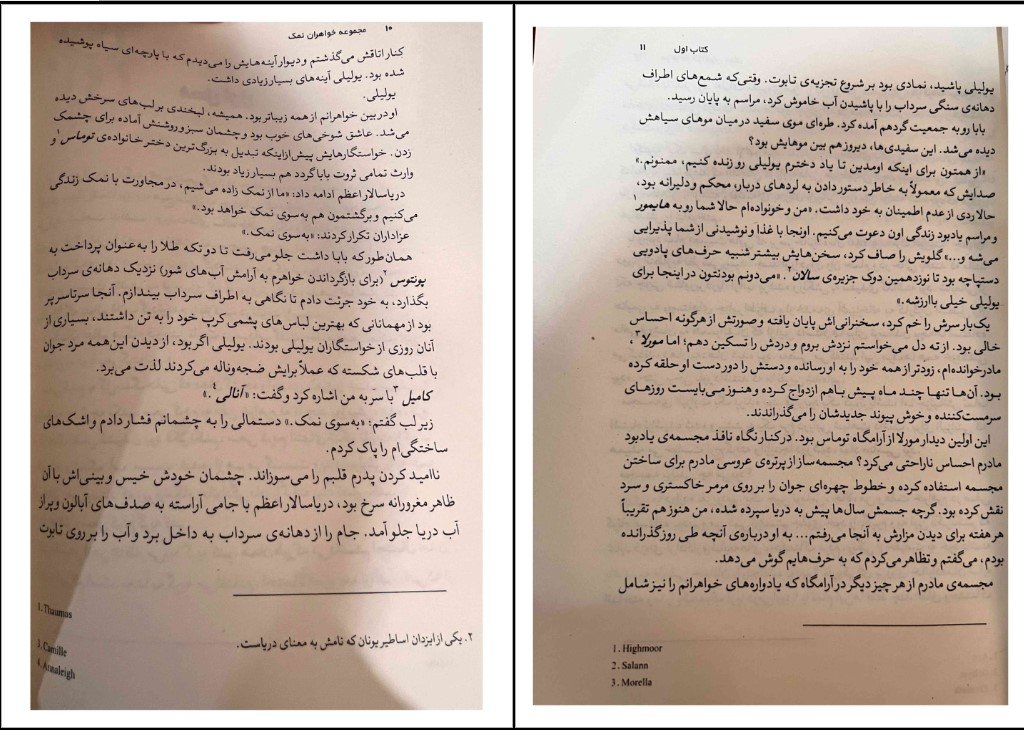 ۱۰ مجموعه خواهران نمک
کنار اتاقش می‌گذشتم و دیوار آینه‌هایش را می‌دیدم که با پارچه‌ای سیاه پوشیده
شده بود. یولیلی آینه‌های بسیار زیادی داشت.
یولیلی.
او در بین خواهرانم از همه زیباتر بود. همیشه، لبخندی بر لب‌های سرخش دیده
می‌شد. عاشق شوخی‌های خوب بود و چشمان سبز و روشنش آماده برای چشمک
زدن. خواستگارهایش پیش از اینکه تبدیل به بزرگ‌ترین دختر خانواده‌ی توماس۱ و
وارث تمامی ثروت بابا گردد هم بسیار زیاد بودند.
دریاسالار اعظم ادامه داد: «ما از نمک زاده می‌شیم، در مجاورت با نمک زندگی
می‌کنیم و برگشتمون هم به‌سوی نمک خواهد بود.»
عزاداران تکرار کردند: «به‌سوی نمک.»
همان‌طور که بابا داشت جلو می‌رفت تا دو تکه طلا را به‌عنوان پرداخت به
پونتوس۲ (برای بازگرداندن خواهرم به آرامش آب‌های شور) نزدیک دهانه‌ی سرداب
بگذارد، به خود جرئت دادم تا نگاهی به اطراف سرداب بیندازم. آنجا سرتاسر پر
بود از مهمانانی که بهترین لباس‌های پشمی کرپ خود را به تن داشتند، بسیاری از
آنان روزی از خواستگاران یولیلی بودند. یولیلی اگر بود، از دیدن این همه مرد جوان
با قلب‌های شکسته که عملاً برایش ضجه‌وناله می‌کردند لذت می‌برد.
کامیل۳ با سر به من اشاره کرد و گفت: «آنالی۴.»
زیر لب گفتم: «به‌سوی نمک.» دستمالی را به چشمانم فشار دادم و اشک‌های
ساختگی‌ام را پاک کردم.
ناامید کردن پدرم قلبم را می‌سوزاند. چشمان خودش خیس و بینی‌اش با آن
ظاهر مغرورانه سرخ بود، دریاسالار اعظم با جامی آراسته به صدف‌های آبالون و پر از
آب دریا جلو آمد. جام را از دهانه‌ی سرداب به داخل برد و آب را بر روی تابوت
1. Thaumas
۲. یکی از ایزدان اساطیر یونان که نامش به معنای دریاست.
3. Camille
4. Annaleigh
کتاب اول ۱۱
یولیلی پاشید، نمادی بود بر شروع تجزیه‌ی تابوت. وقتی‌که شمع‌های اطراف
دهانه‌ی سنگی سرداب را با پاشیدن آب خاموش کرد، مراسم به پایان رسید.
بابا رو به جمعیت گردهم آمده کرد. طره‌ای موی سفید در میان موهای سیاهش
دیده می‌شد. این سفیدی‌ها، دیروز هم بین موهایش بود؟
«از همتون برای اینکه اومدین تا یاد دخترم یولیلی رو زنده کنیم، ممنونم.»
صدایش که معمولاً به خاطر دستور دادن به لردهای دربار، محکم و دلیرانه بود،
حالا ردی از عدم اطمینان به خود داشت. «من و خونواده‌ام حالا شما رو به هایمور۱
و مراسم یادبود زندگی اون دعوت می‌کنیم. اونجا با غذا و نوشیدنی از شما پذیرایی
می‌شه و...» گلویش را صاف کرد، سخن‌هایش بیشتر شبیه حرف‌های پادویی
دستپاچه بود تا نوزدهمین دوک جزیره‌ی سالان۲. «می‌دونم بودنتون در اینجا برای
یولیلی خیلی باارزشه.»
یک‌بار سرش را خم کرد، سخنرانی‌اش پایان یافته و صورتش از هرگونه احساس
خالی بود. از ته دل می‌خواستم نزدش بروم و دردش را تسکین دهم؛ اما مورلا۳،
مادرخوانده‌ام، زودتر از همه خود را به او رسانده و دستش را دور دست او حلقه کرده
بود. آن‌ها تنها چند ماه پیش با هم ازدواج کرده و هنوز می‌بایست روزهای
سرمست‌کننده و خوش پیوند جدیدشان را می‌گذراندند.
این اولین دیدار مورلا از آرامگاه توماس بود. در کنار نگاه نافذ مجسمه‌ی یادبود
مادرم احساس ناراحتی می‌کرد؟ مجسمه‌ساز از پرتره‌ی عروسی مادرم برای ساختن
مجسمه استفاده کرده و خطوط چهره‌ای جوان را بر روی مرمر خاکستری و سرد
نقش کرده بود. گرچه جسمش سال‌ها پیش به دریا سپرده شده، من هنوز هم تقریباً
هر هفته برای دیدن مزارش به آنجا می‌رفتم... به او درباره‌ی آنچه طی روز گذرانده
بودم، می‌گفتم و تظاهر می‌کردم که به حرف‌هایم گوش می‌دهد.
مجسمه‌ی مادرم از هر چیز دیگر در آرامگاه که یادواره‌های خواهرانم را نیز شامل
1. Highmoor
2. Salann
3. Morella